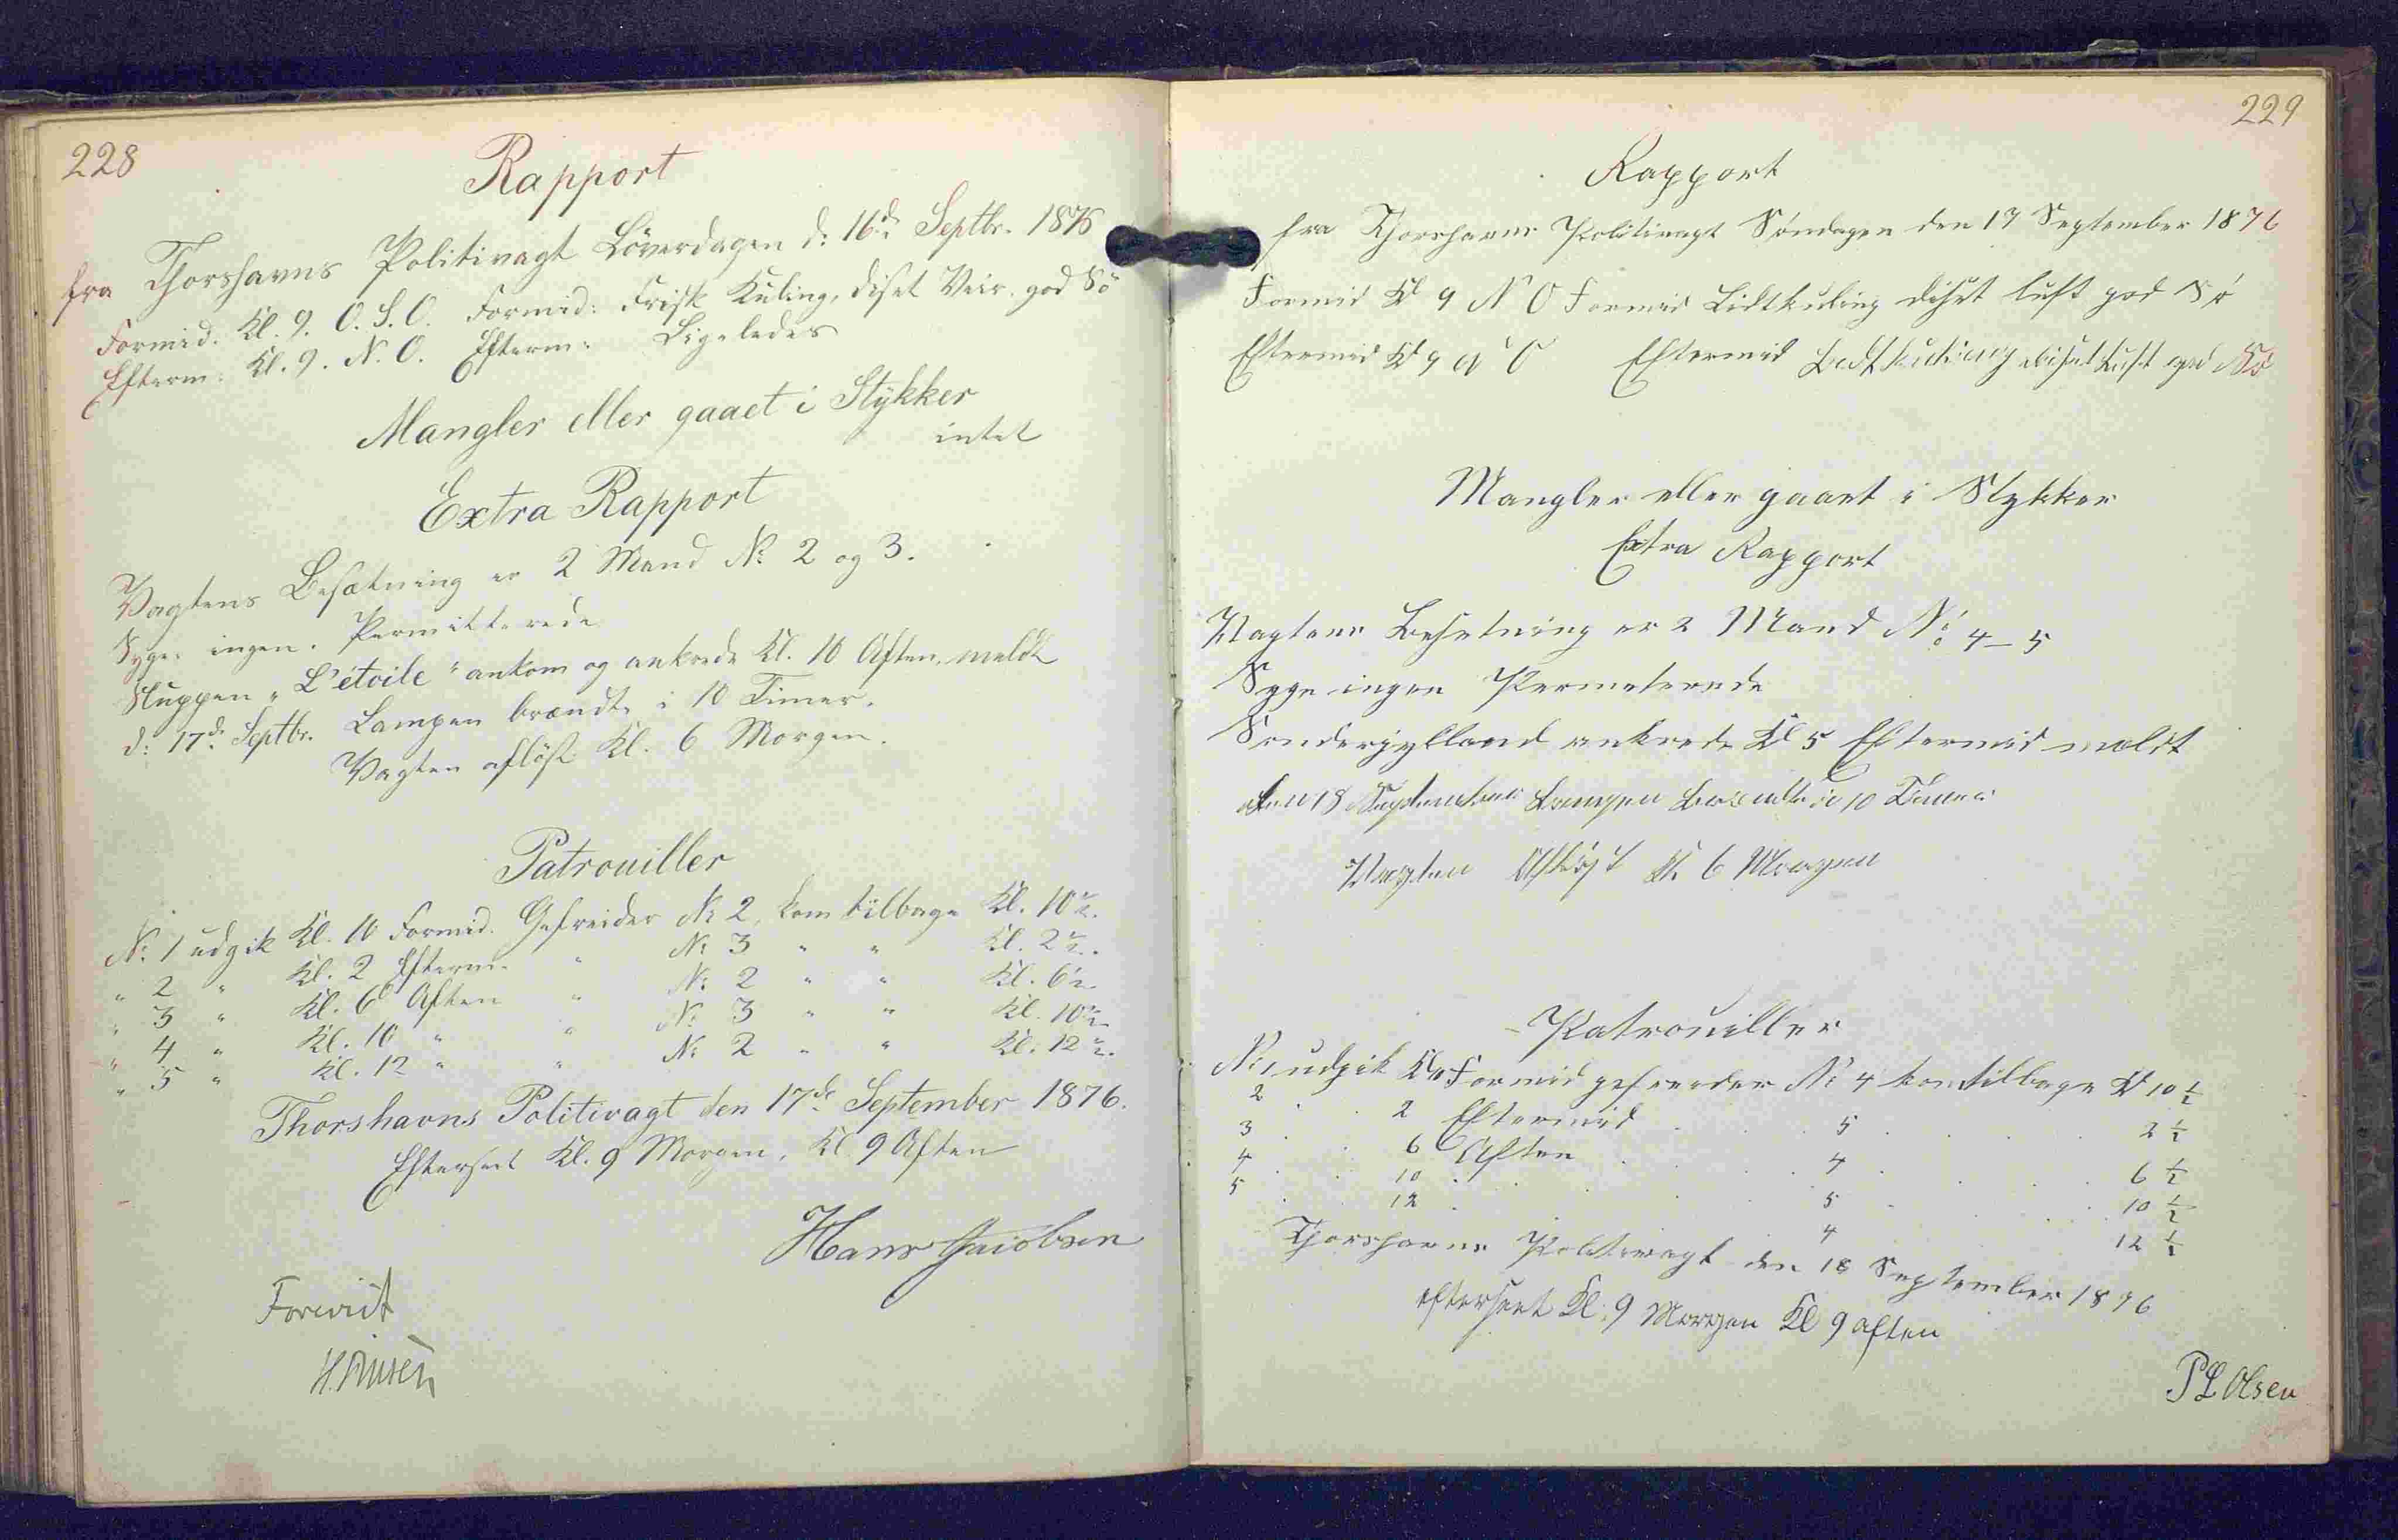 228
Rapport
fra Thorshavns Politivagt Löverdagen d: 16d. Septbr. 1876
Formid. Kl. 9. O.S.O. Formid: Frisk Kuling, diset Veir. god Sö
Efterm: Kl. 9. N.O. Efterm: Ligeledes
Mangler eller gaaet i Stykker
intet
Extra Rapport
Vagtens Besætning er 2 Mand No 2 og 3.
Syge. ingen. Permitterede
Sluppen "L'étoile" ankom og ankrede Kl. 10 Aften. meldt
d: 17d. Septbr. Lampen brændte i 10 Timer.
Vagten aflöst Kl. 6 Morgen.
Patrouiller
No: 1 udgik Kl. 10 Formid. Gefreider No 2, kom tilbage Kl. 10½.
" 2 " Kl. 2 Efterm. " No 3 " " Kl. 2½.
" 3 " Kl. 6 Aften " No 2 " " Kl. 6½
" 4 " Kl. 10 " " No 3 " " Kl. 10½
" 5 " Kl. 12 " " No 2 " " Kl. 12½.
Thorshavns Politivagt den 17de September 1876.
Efterseet Kl. 9 Morgen, Kl. 9 Aften
Hans Jacobsen
Forevist
229
Rapport
fra Thorshavns Politivagt Søndagen den 17 September 1876
Formid Kl 9 N O Formid Lidtkuling diset luft god Sø
Eftermid Kl 9 N O Eftermid Lidtkuling diset Luft god Sø
Mangler eller gaaet i Stykker
Extra Rapport
Vagtens Besetning er 2 Mand No: 4 - 5
Syge ingen Permeterede
Sønderjylland ankrede Kl 5 Eftermid meldt
den 18 September Lampen brændte i 10 Timer
Vagten Afløst Kl 6 Morgen
Patrouiller
No 1 udgik Kl 10 Formid gefreeder No 4 kom tilbage Kl 10 ½
2 . . 2 Eftermid . . 5 . . . 2 ½
3 . . 6 Aften . . 4 . . . 6 ½
4 . . 10 . . . 5 . . . 10 ½
5 . . 12 . . . 4 . . . 12 ½
Thorshavns Politivagt den 18 September 1876
efterseet Kl. 9 Morgen Kl 9 aften
P L Olsen